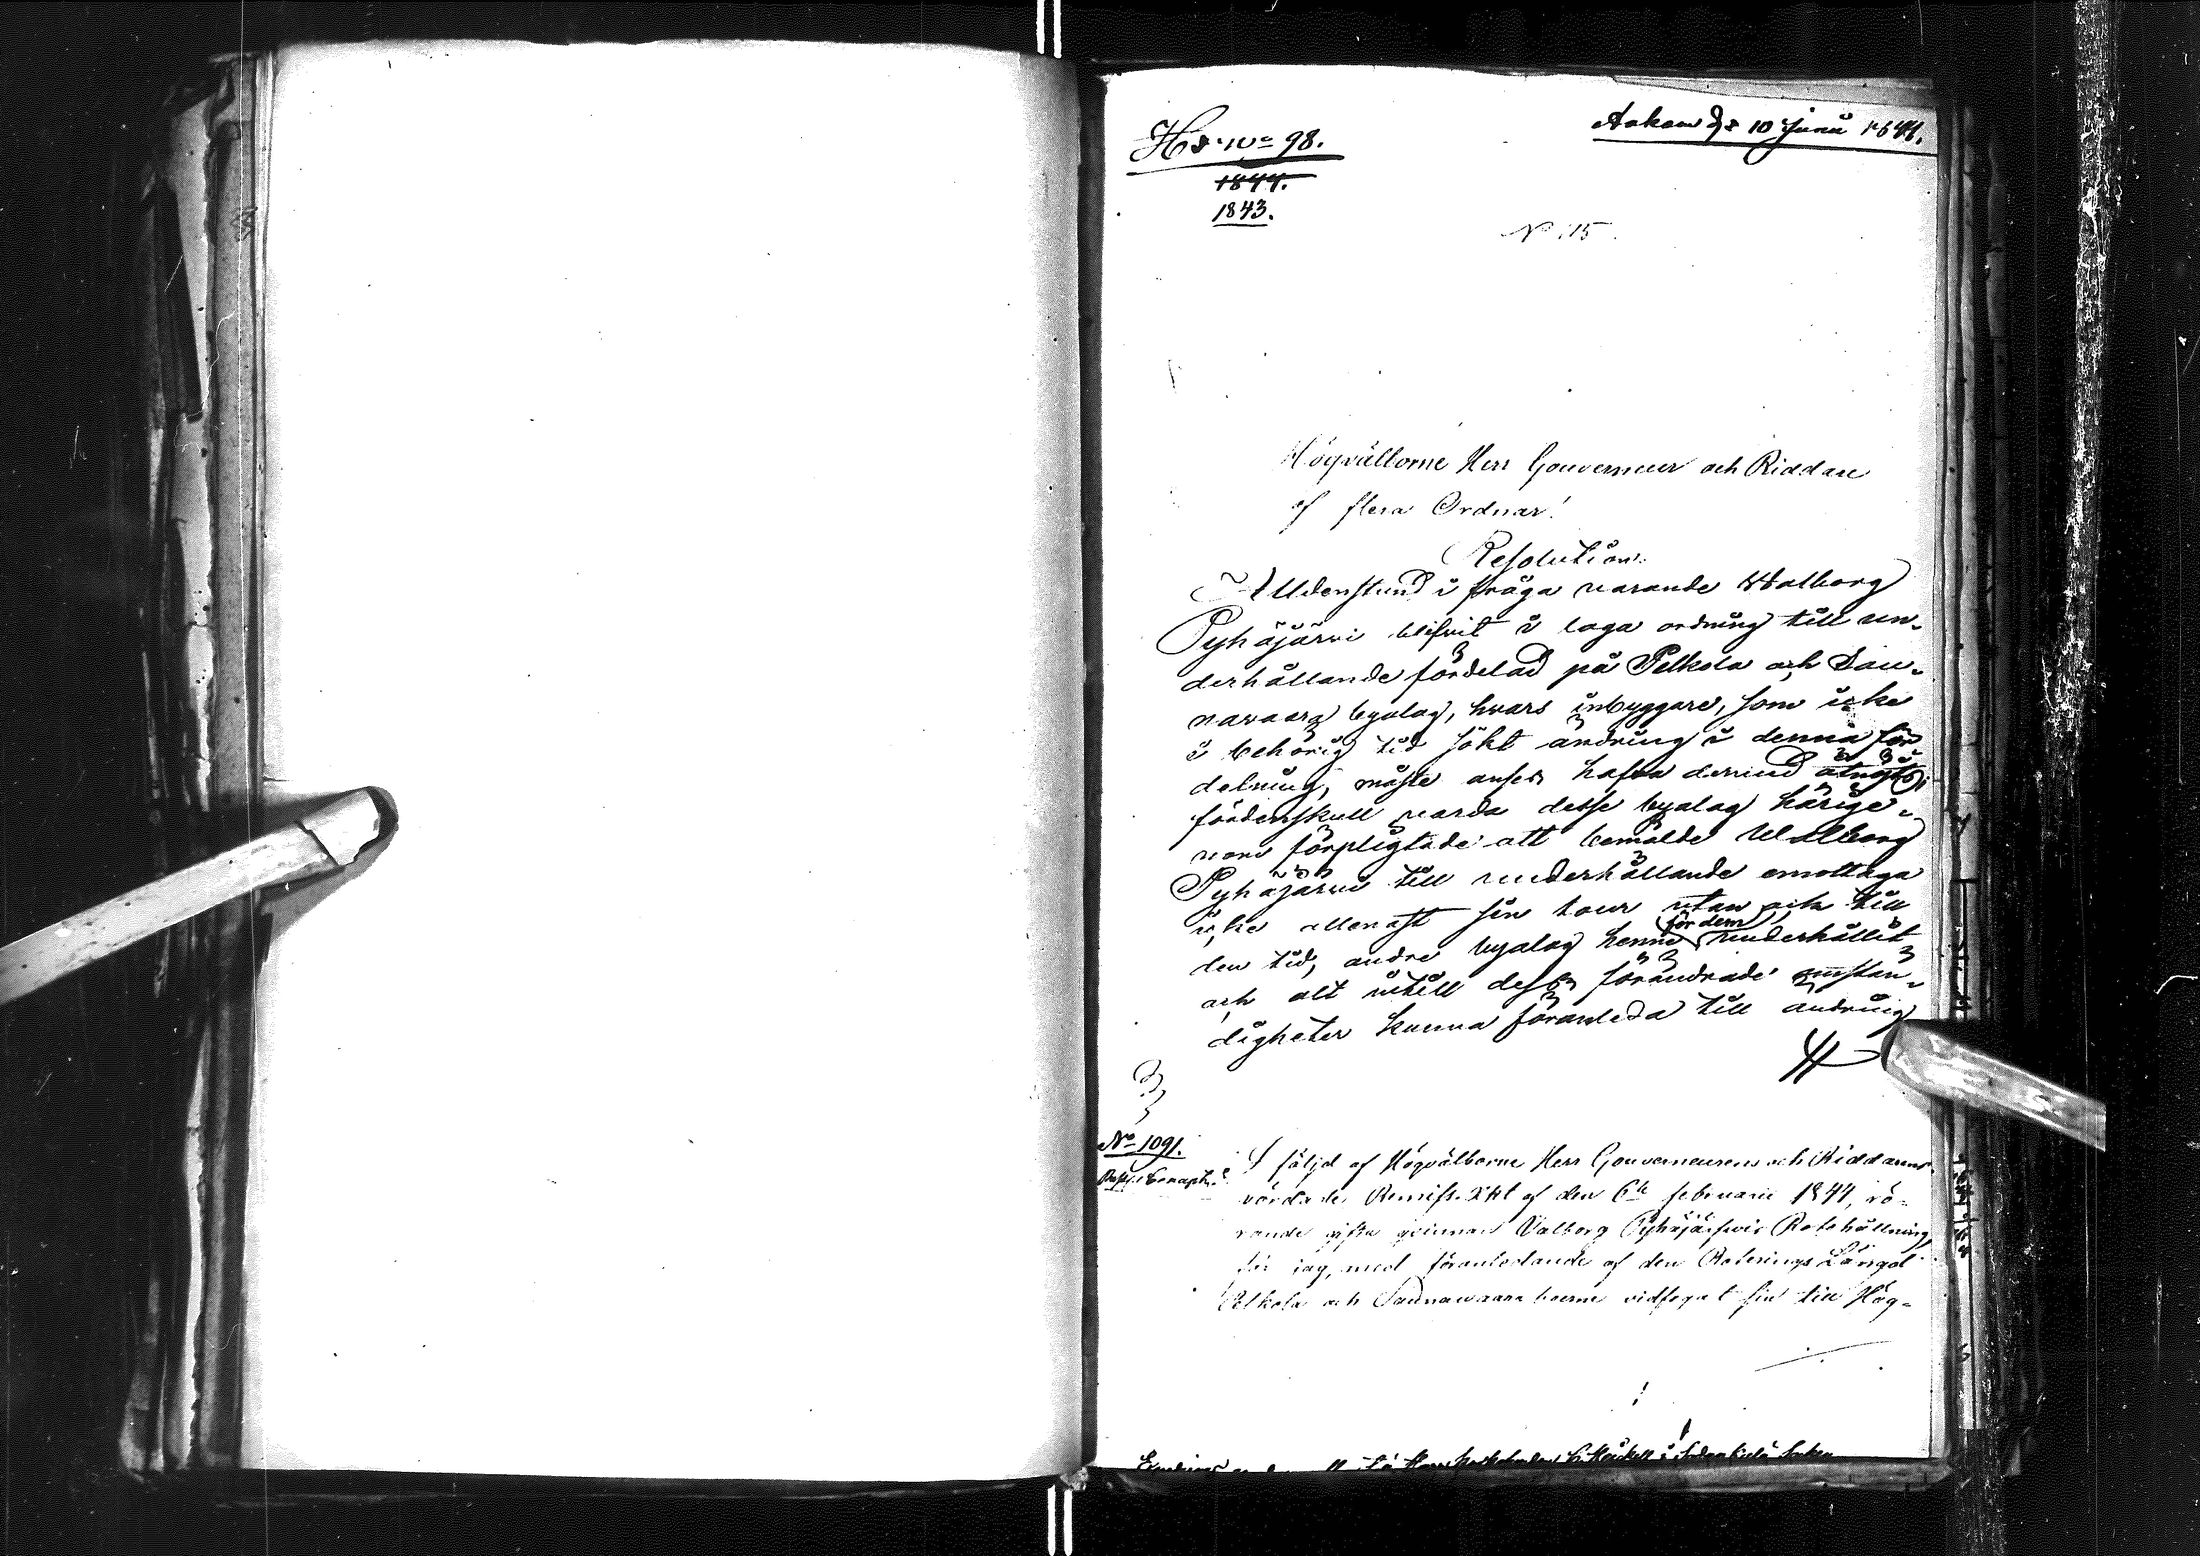 Ankom d. 10 Junii 1844.
Hd. No 98.
1844.
1843.
No 115.
Högvälborne Herr Gouverneur och Riddare
af flera Ordnar!
Resolution.
Alldenstund i fråga varande Walborg
Pyhäjärvi blifvit i laga ordning till un-
derhållande fördelad på Pelkola och Sau-
navaara byalag, hvars inbyggare, som icke
i behörig tid sökt ändring i denna för
delning, måste anses hafva dermed åtnöjts;
fördenskull varda desse byalag härige-
nom förpligtade att bemälde Walborg
Pyhäjärvi till underhållande emottaga
icke allenast sin tour utan och till
den tid, andre byalag henne för dem underhållit
och alt intill dess förändrade omstän-
digheter kunna föranleda till ändring
No 1091.
I följd af Högvälborne Herr Gouverneurens och Riddarens
vördade Remiss. Akt af den 6te februarii 1844, rö-
rande gifta qvinnan Valborg Pyhäjärfwis Rotehållning
får jag, med föranledande af den Roterings Längd
Pelkola och Saunawaara boerne vidfogat sin till Hög-